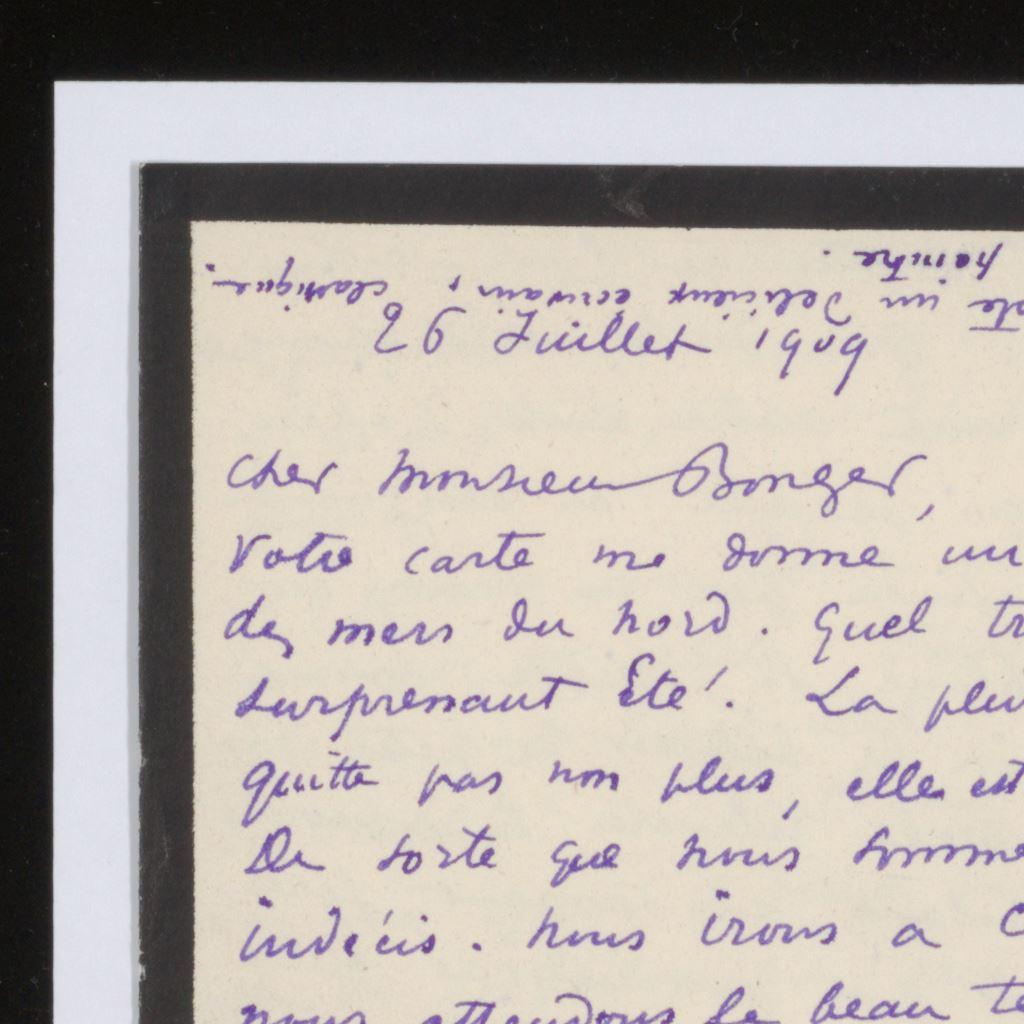 peintre.
un delicieux ecrivain, classique.
26 Juillet 1909
Cher Monsieur Bonger,
Votre carte me donne un
des mers du nord. Quel
surprenant Eté! La
quitte pas non plus, elle est
De sorte que nous
indécis. Nous irons a
nous attendons le beau